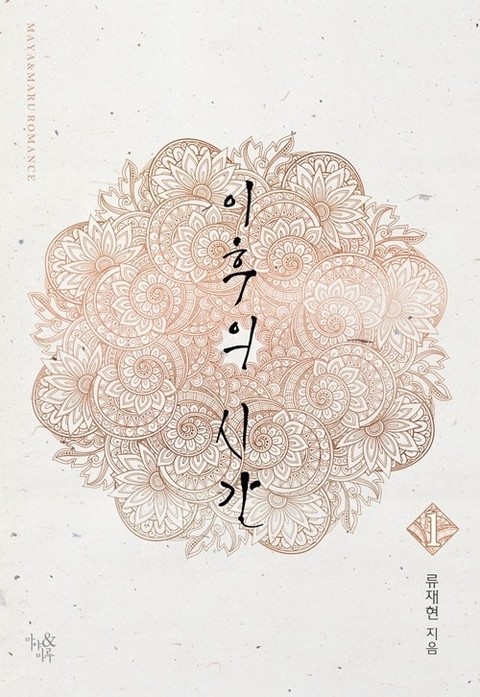 MAYA&MARU ROMANCE
이후의 시간
1
류재현 지음
마야&마루